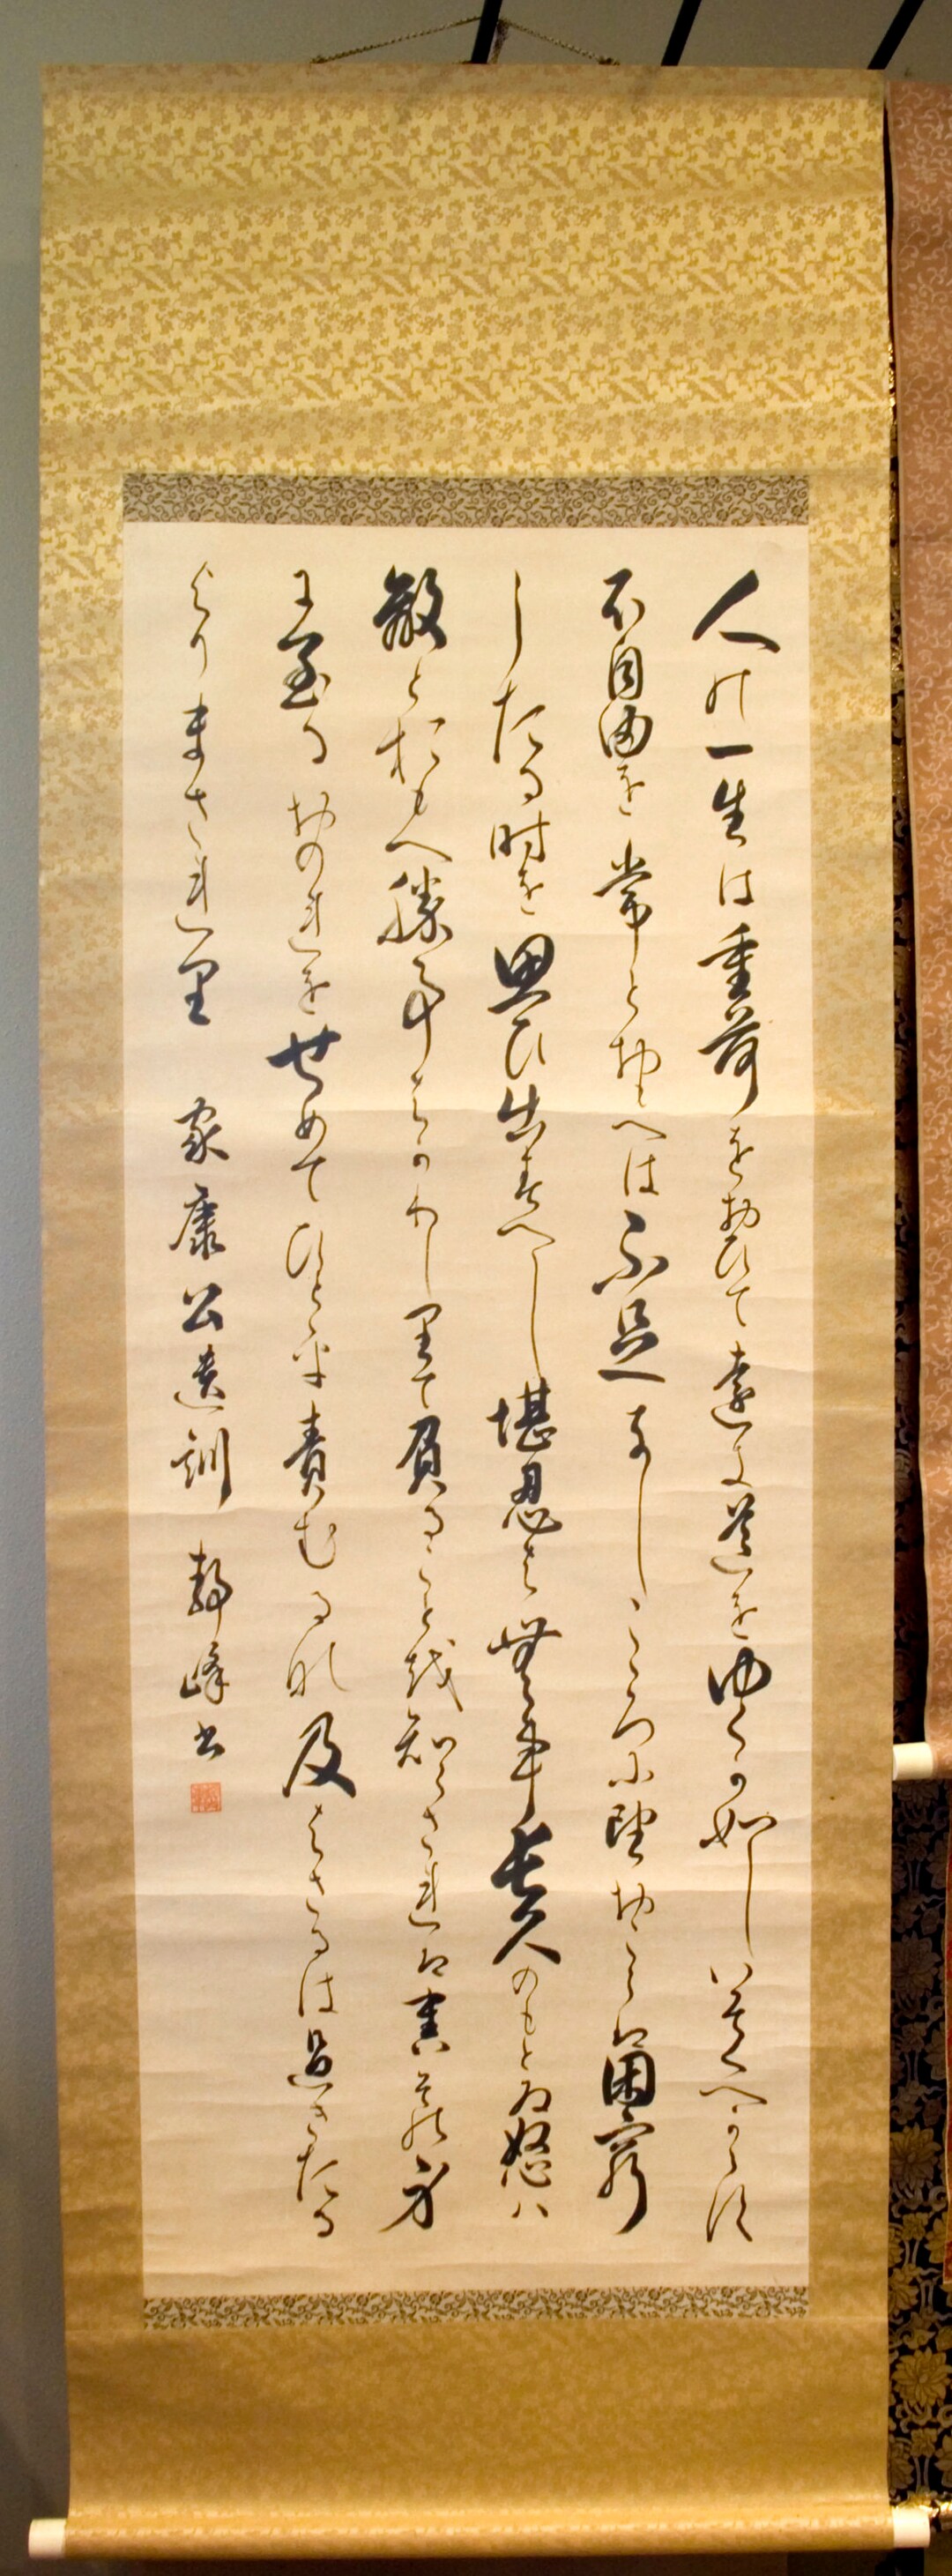 人の一生は重荷をおひて遠き道をゆくか如しいそくへからす
不自由を常とおもへは不足なしこころに望おこらは困窮
したる時を思ひ出すへし堪忍は無事長久のもとゐ怒ハ
敵とおもへ勝事はかりしりて負ることを知らされは害其身
に至るおのれをせめてひとを責むるな及はさるは過きたる
よりまされり 家康公遺訓 静峰書